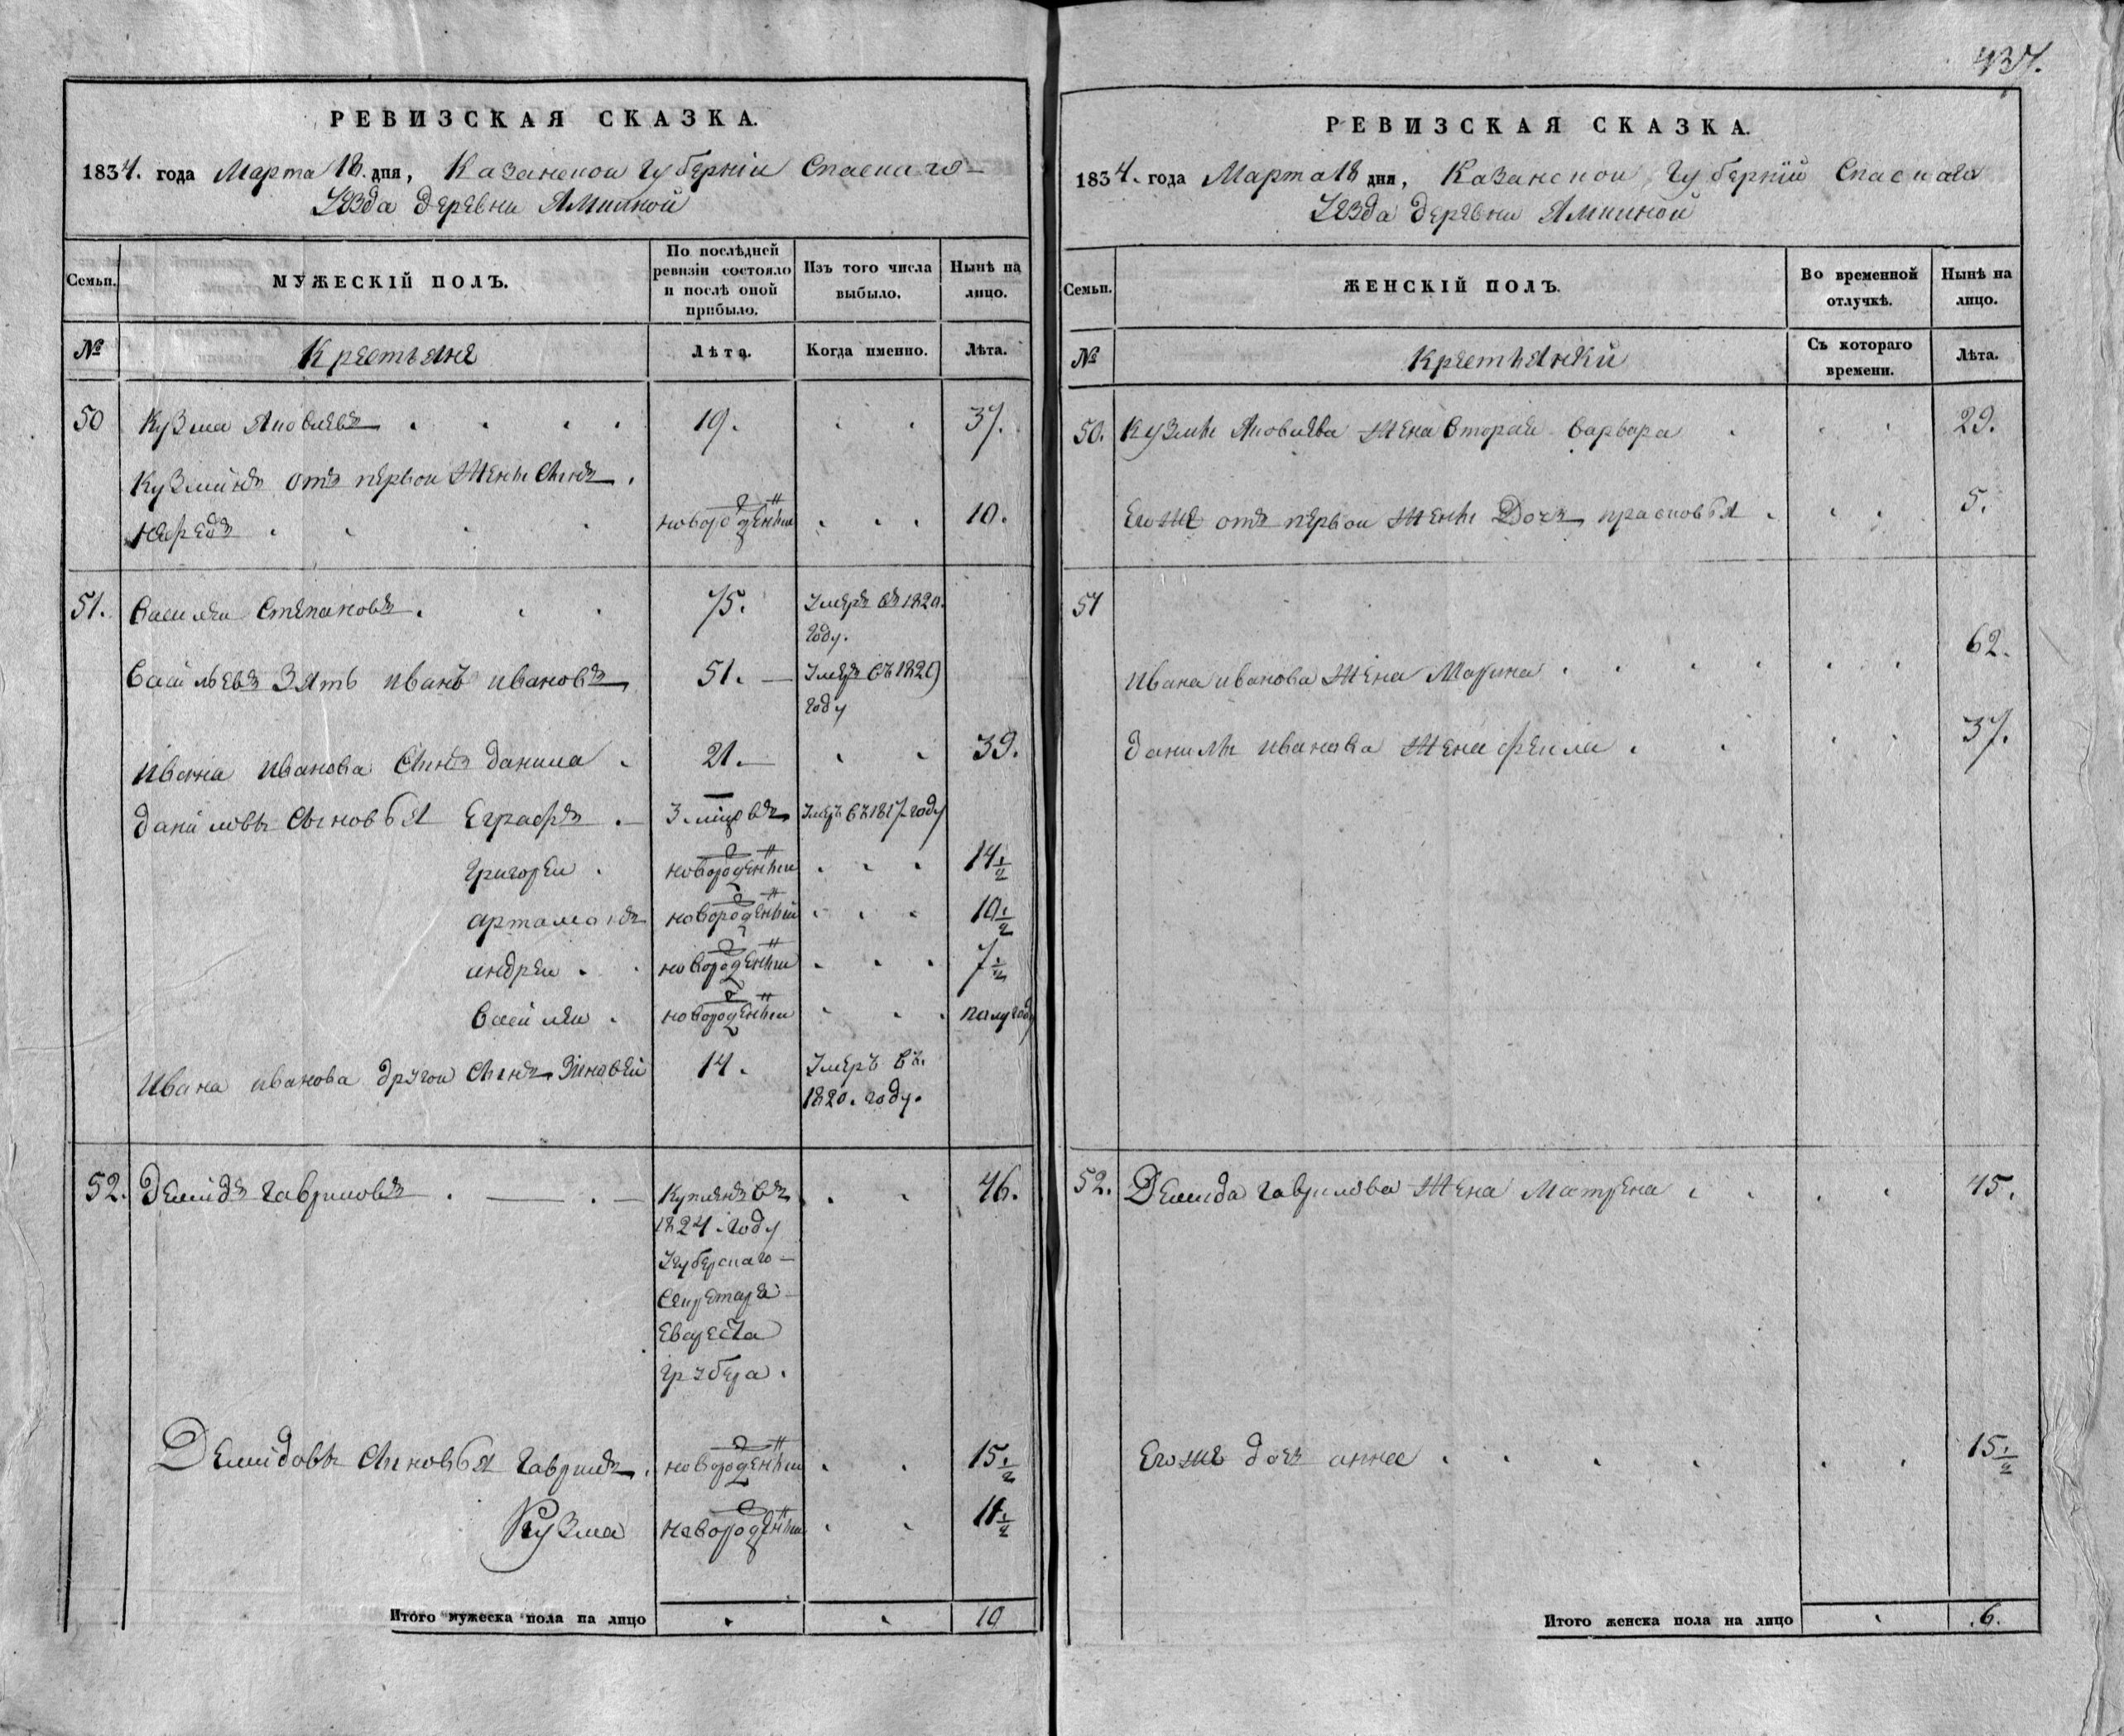 437.
РЕВИЗСКАЯ СКАЗКА.
1834. года Марта 18. дня, Казанской губерніи Спаскаго
Уезда деревни Амининой
Семьи. МУЖЕСКІЙ ПОЛЪ. По послѣдней ревизіи состояло и послѣ оной прибыло. Изъ того числа выбыло. Нынѣ на лицо.
№ Крестьяне Лѣта. Когда именно. Лѣта.
50 Кузма Яковлевъ 19. 37.
Кузминъ отъ первой жены сынъ
новорожденный 10.
51. Василеи Степановъ 75. Умеръ въ 1820. году.
Васильевъ Зять иванъ ивановъ 51. Умеръ въ 1829 году
ивана иванова сынъ данила 21. 39.
даниловы сыновья Еграфъ 3 мцовъ Умеръ въ 1817 году
григореи новорожденныи 14 1/2
артамонъ новорожденный 10 1/2
андреи новорожденныи 7 1/2
василеи новорожденныи полугоду
ивана иванова другои сынъ Зиновеи 14. Умеръ въ 1820. году.
52. Демидъ гавриловъ Купленъ въ 46.
1824. году
Губерскаго
Секретаря
Евареста
грубера.
Демидовы сыновья гаврила новорожденныи 15 1/2
Кузма новорожденныи 11 1/2
Итого мужеска пола на лицо 10
РЕВИЗСКАЯ СКАЗКА.
1834. года Марта 18 дня, Казанской губерніи Спаскаго
Уезда деревни Амининой
Семьи. ЖЕНСКІЙ ПОЛЪ. Во временной отлучкѣ. Нынѣ на лицо.
№ Крестьянки Съ котораго времени. Лѣта.
50. Кузмы Яковлева жена вторая варвара 29.
Егоже отъ первои жены Дочь прасковья 5.
51
ивана иванова жена Марина 62.
данилы иванова жена фекла 37.
52. Демида гаврилова жена Матрена 45.
Егоже дочь анна 15 1/2
Итого женска пола на лицо 6.